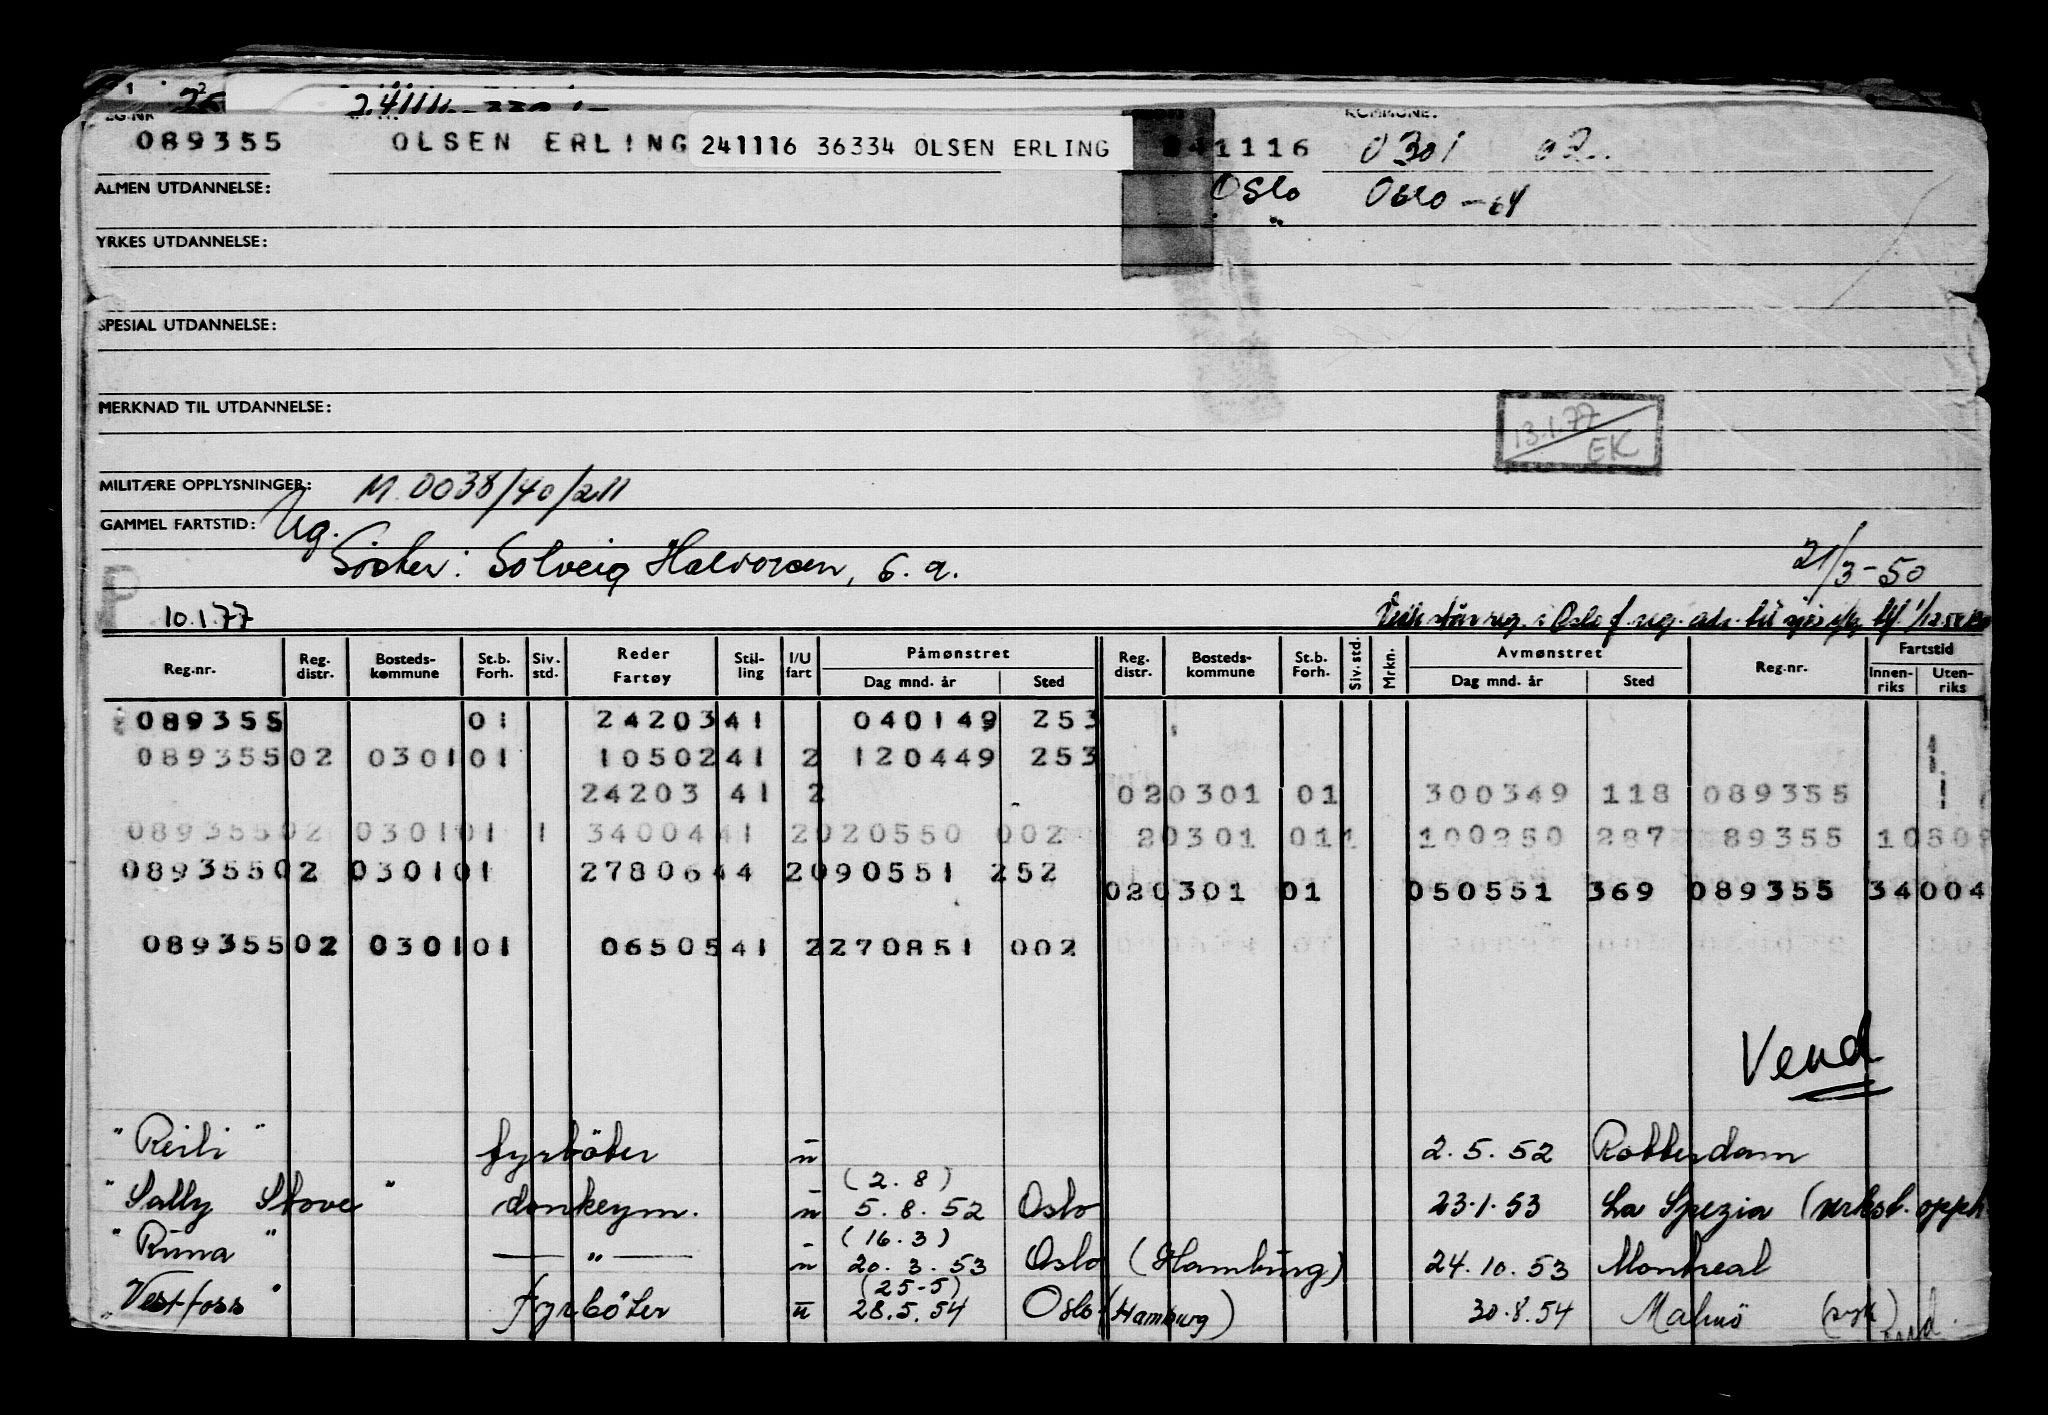 KOMMUNE:
089355 OLSEN ERLING 241116 36334 OLSEN ERLING 241116 0301 02
ALMEN UTDANNELSE: Oslo Oslo - 64
YRKES UTDANNELSE:
SPESIAL UTDANNELSE:
MERKNAD TIL UTDANNELSE:
13.1.77
EK
MILITÆRE OPPLYSNINGER: M. 0038/40/211
GAMMEL FARTSTID: Ug.
Söster: Solveig Halvorsen, s. a. 21/3-50
P
10.1.77
Reg.nr. Reg. distr. Bosteds-kommune St.b. Forh. Siv. std. Reder Fartøy Stil-ling I/U fart Påmønstret Dag mnd. år Sted Reg. distr. Bosteds-kommune St.b. Forh. Siv. std. Mrkn. Avmønstret Dag mnd. år Sted Reg.nr. Fartstid Innen-riks Uten-riks
089355 01 24203 41 040149 253
089355 02 0301 01 10502 41 2 120449 253
24203 41 2 02 0301 01 300349 118 089355
089355 02 0301 01 1 34004 41 2 020550 002 20301 01 1 100250 287 89355 10502
089355 02 0301 01 27806 44 2 090551 252
02 0301 01 050551 369 089355 34004
089355 02 0301 01 06505 41 2 270851 002
Vend
" " fyrböter u 2.5.52 Rotterdam
(2.8)
"Sally Stove" donkeym. u 5.8.52 Oslo 23.1.53 La Spezia
(16.3)
"Runa" — " — u 20.3.53 Oslo (Hamburg) 24.10.53 Montreal
(25-5)
"Vestfoss" fyrböter u 28.5.54 Oslo (Hamburg) 30.8.54 Malmö (syk)